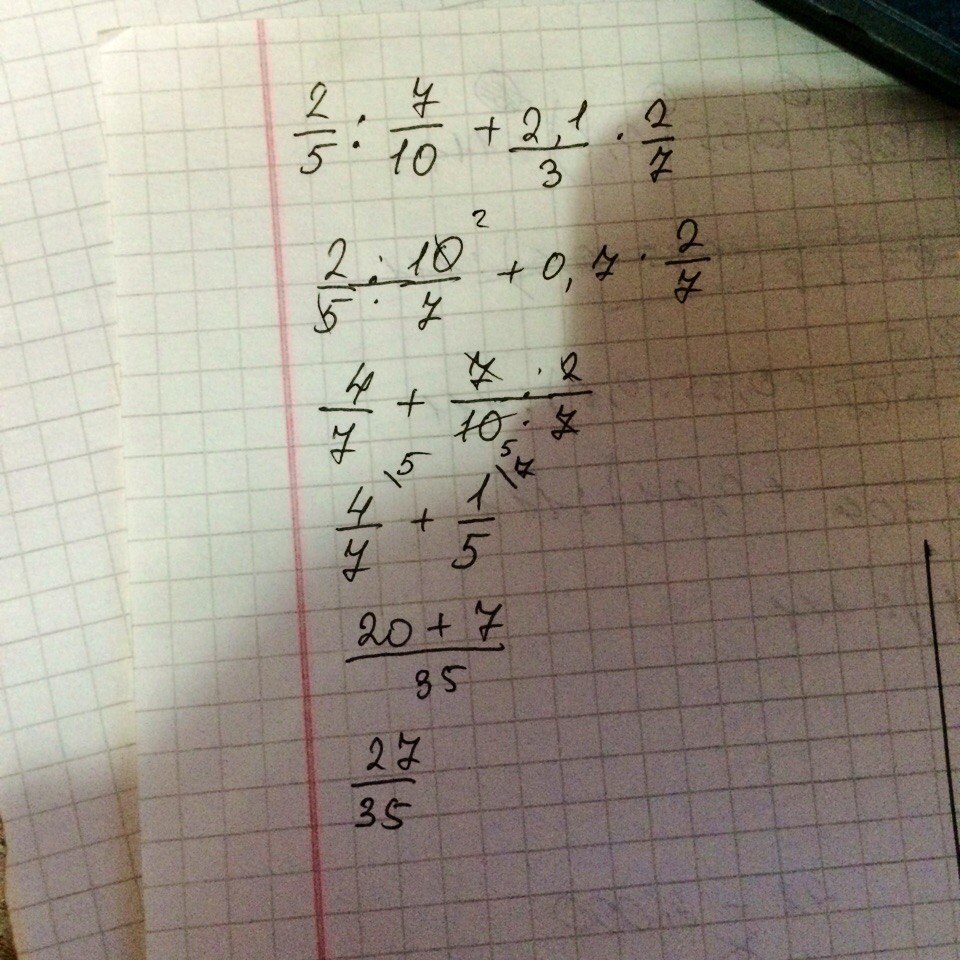 2/5 : 7/10 + 2,1/3 · 2/7
2/5 : 10/7 2 + 0,7 · 2/7
4/7 + 7 · 2/10 · 7 5
4/7 \5 + 1/5 \7
20 + 7/35
27/35